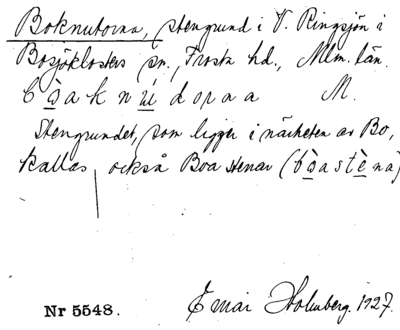 Boknutorna, stengrund i V. Ringsjön i
Bosjöklosters sn., Frosta hd., Mlm. län.
bòaknúdoraa M.
Stengrundet, som ligger i närheten av Bo,
kallas också Boa stenar (bòastèna)
Nr 5548. Einar Holmberg. 1927.